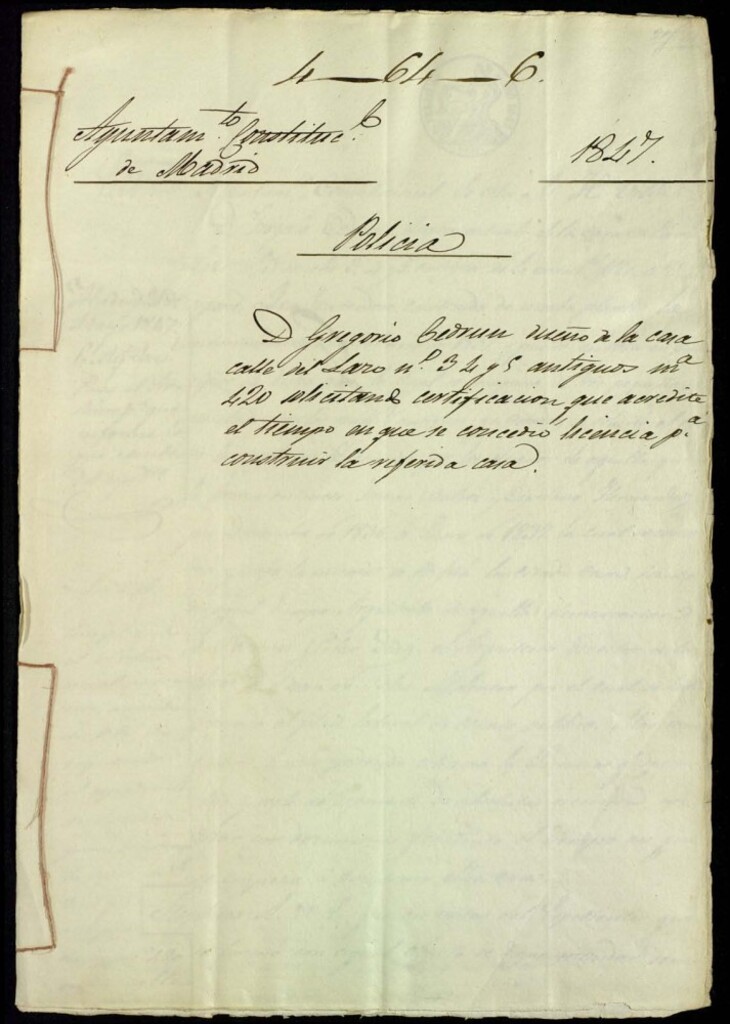 4—64—6.
Ayuntam.to Constituc.l
de Madrid
1847.
Policia
D Gregorio Cedrun dueño de la casa
calle del Lazo n.o 3 4 y 5 antiguos m.a
420 solicitando certificacion que acredite
el tiempo en que se concedió licencia p.a
construir la referida casa.